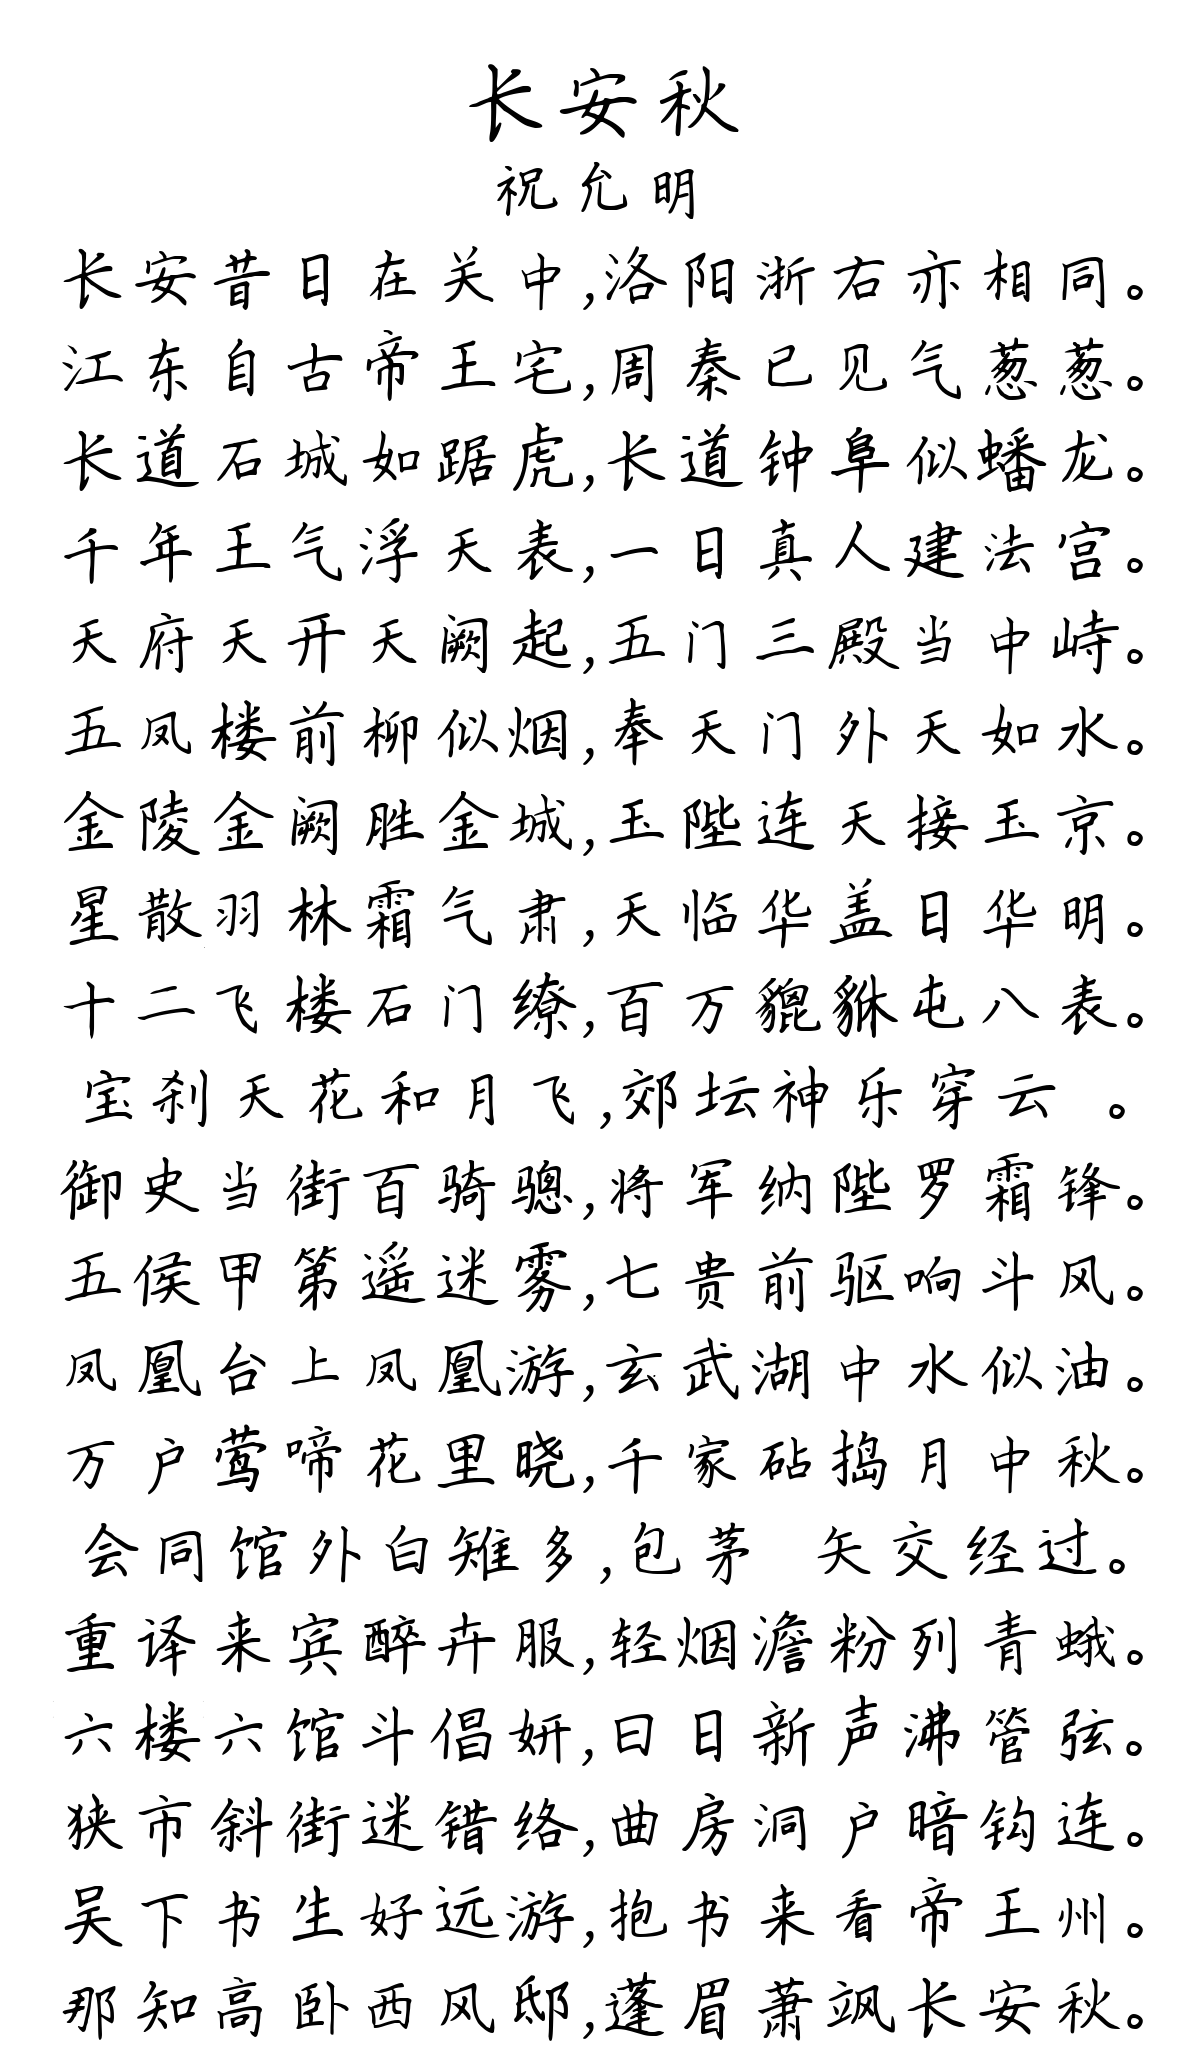 长安秋
祝允明
长安昔日在关中,洛阳浙右亦相同。
江东自古帝王宅,周秦已见气葱葱。
长道石城如踞虎,长道钟阜似蟠龙。
千年王气浮天表,一日真人建法宫。
天府天开天阙起,五门三殿当中峙。
五凤楼前柳似烟,奉天门外天如水。
金陵金阙胜金城,玉陛连天接玉京。
星散羽林霜气肃,天临华盖日华明。
十二飞楼石门缭,百万貔貅屯八表。
宝刹天花和月飞,郊坛神乐穿云 。
御史当街百骑骢,将军纳陛罗霜锋。
五侯甲第遥迷雾,七贵前驱响斗风。
凤凰台上凤凰游,玄武湖中水似油。
万户莺啼花里晓,千家砧捣月中秋。
会同馆外白雉多,包茅 矢交经过。
重译来宾醉卉服,轻烟澹粉列青蛾。
六楼六馆斗倡妍,曰日新声沸管弦。
狭市斜街迷错络,曲房洞户暗钩连。
吴下书生好远游,抱书来看帝王州。
那知高卧西风邸,蓬眉萧飒长安秋。